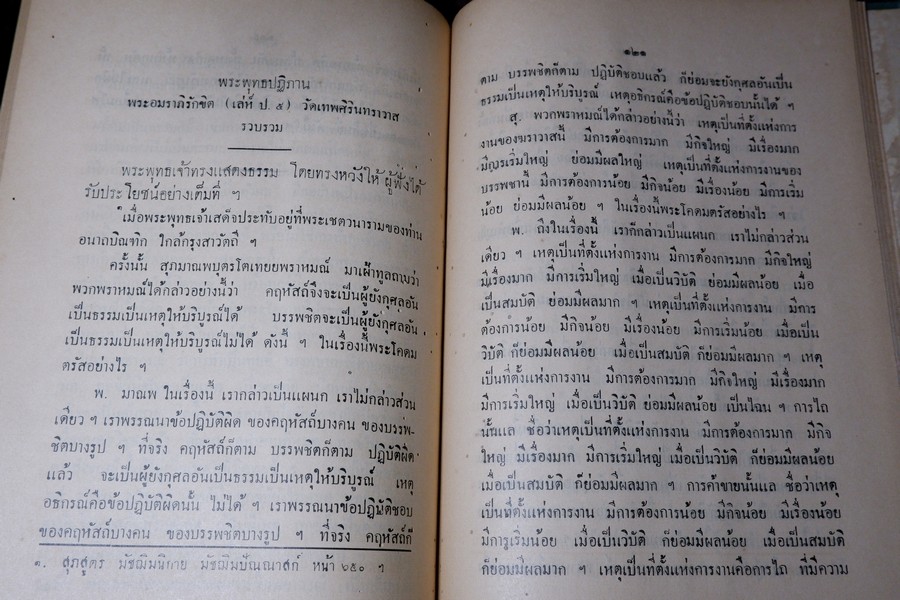 พระพุทธปฏิภาน
พระอมราภิรักขิต (เสห์ ป. ๕) วัดเทพศิรินทราวาส
รวบรวม
พระพุทธเจ้าทรงแสดงธรรม โดยทรงหวังให้ ผู้ฟังได้
รับประโยชน์อย่างเต็มที่ ฯ
เมื่อพระพุทธเจ้าเสด็จประทับอยู่ที่พระเชตวนารามของท่าน
อนาถบิณฑิก ใกล้กรุงสาวัตถี ฯ
ครั้งนั้น สุภมาณพบุตรโตเทยยพราหมณ์ มาเฝ้าทูลถามว่า
พวกพราหมณ์ได้กล่าวอย่างนี้ว่า คฤหัสถ์จึงจะเป็นผู้ยังกุศลอัน
เป็นธรรมเป็นเหตุให้บริบูรณ์ได้ บรรพชิตจะเป็นผู้ยังกุศลอัน
เป็นธรรมเป็นเหตุให้บริบูรณ์ไม่ได้ ดังนี้ ฯ ในเรื่องนี้พระโคดม
ตรัสอย่างไร ฯ
พ. มาณพ ในเรื่องนี้ เรากล่าวเป็นแผนก เราไม่กล่าวส่วน
เดียว ฯ เราพรรณนาข้อปฏิบัติผิด ของคฤหัสถ์บางคน ของบรรพ-
ชิตบางรูป ฯ ที่จริง คฤหัสถ์ก็ตาม บรรพชิตก็ตาม ปฏิบัติผิด
แล้ว จะเป็นผู้ยังกุศลอันเป็นธรรมเป็นเหตุให้บริบูรณ์ เหตุ
อธิกรณ์คือข้อปฏิบัติผิดนั้น ไม่ได้ ฯ เราพรรณนาข้อปฏิบัติชอบ
ของคฤหัสถ์บางคน ของบรรพชิตบางรูป ฯ ที่จริง คฤหัสถ์ก็
๑. สุภสูตร มัชฌิมนิกาย มัชฌิมปัณณาสก์ หน้า ๖๕๐ ฯ
๑๒๑
ตาม บรรพชิตก็ตาม ปฏิบัติชอบแล้ว ก็ย่อมจะยังกุศลอันเป็น
ธรรมเป็นเหตุให้บริบูรณ์ เหตุอธิกรณ์คือข้อปฏิบัติชอบนั้นได้ ฯ
สุ. พวกพราหมณ์ได้กล่าวอย่างนี้ว่า เหตุเป็นที่ตั้งแห่งการ
งานของฆราวาสนี้ มีการต้องการมาก มีกิจใหญ่ มีเรื่องมาก
มีการเริ่มใหญ่ ย่อมมีผลใหญ่ เหตุเป็นที่ตั้งแห่งการงานของ
บรรพชานี้ มีการต้องการน้อย มีกิจน้อย มีเรื่องน้อย มีการเริ่ม
น้อย ย่อมมีผลน้อย ฯ ในเรื่องนี้พระโคดมตรัสอย่างไร ฯ
พ. ถึงในเรื่องนี้ เราก็กล่าวเป็นแผนก เราไม่กล่าวส่วน
เดียว ฯ เหตุเป็นที่ตั้งแห่งการงาน มีการต้องการมาก มีกิจใหญ่
มีเรื่องมาก มีการเริ่มใหญ่ เมื่อเป็นวิบัติ ย่อมมีผลน้อย เมื่อ
เป็นสมบัติ ย่อมมีผลมาก ฯ เหตุเป็นที่ตั้งแห่งการงาน มีการ
ต้องการน้อย มีกิจน้อย มีเรื่องน้อย มีการเริ่มน้อย เมื่อเป็น
วิบัติ ก็ย่อมมีผลน้อย เมื่อเป็นสมบัติ ก็ย่อมมีผลมาก ฯ เหตุ
เป็นที่ตั้งแห่งการงาน มีการต้องการมาก มีกิจใหญ่ มีเรื่องมาก
มีการเริ่มใหญ่ เมื่อเป็นวิบัติ ย่อมมีผลน้อย เป็นไฉน ฯ การไถ
นั้นแล ชื่อว่าเหตุเป็นที่ตั้งแห่งการงาน มีการต้องการมาก มีกิจ
ใหญ่ มีเรื่องมาก มีการเริ่มใหญ่ เมื่อเป็นวิบัติ ก็ย่อมมีผลน้อย
เมื่อเป็นสมบัติ ก็ย่อมมีผลมาก ฯ การค้าขายนั้นแล ชื่อว่าเหตุ
เป็นที่ตั้งแห่งการงาน มีการต้องการน้อย มีกิจน้อย มีเรื่องน้อย
มีการเริ่มน้อย เมื่อเป็นวิบัติ ก็ย่อมมีผลน้อย เมื่อเป็นสมบัติ
ก็ย่อมมีผลมาก ฯ เหตุเป็นที่ตั้งแห่งการงานคือการไถ ที่มีความ